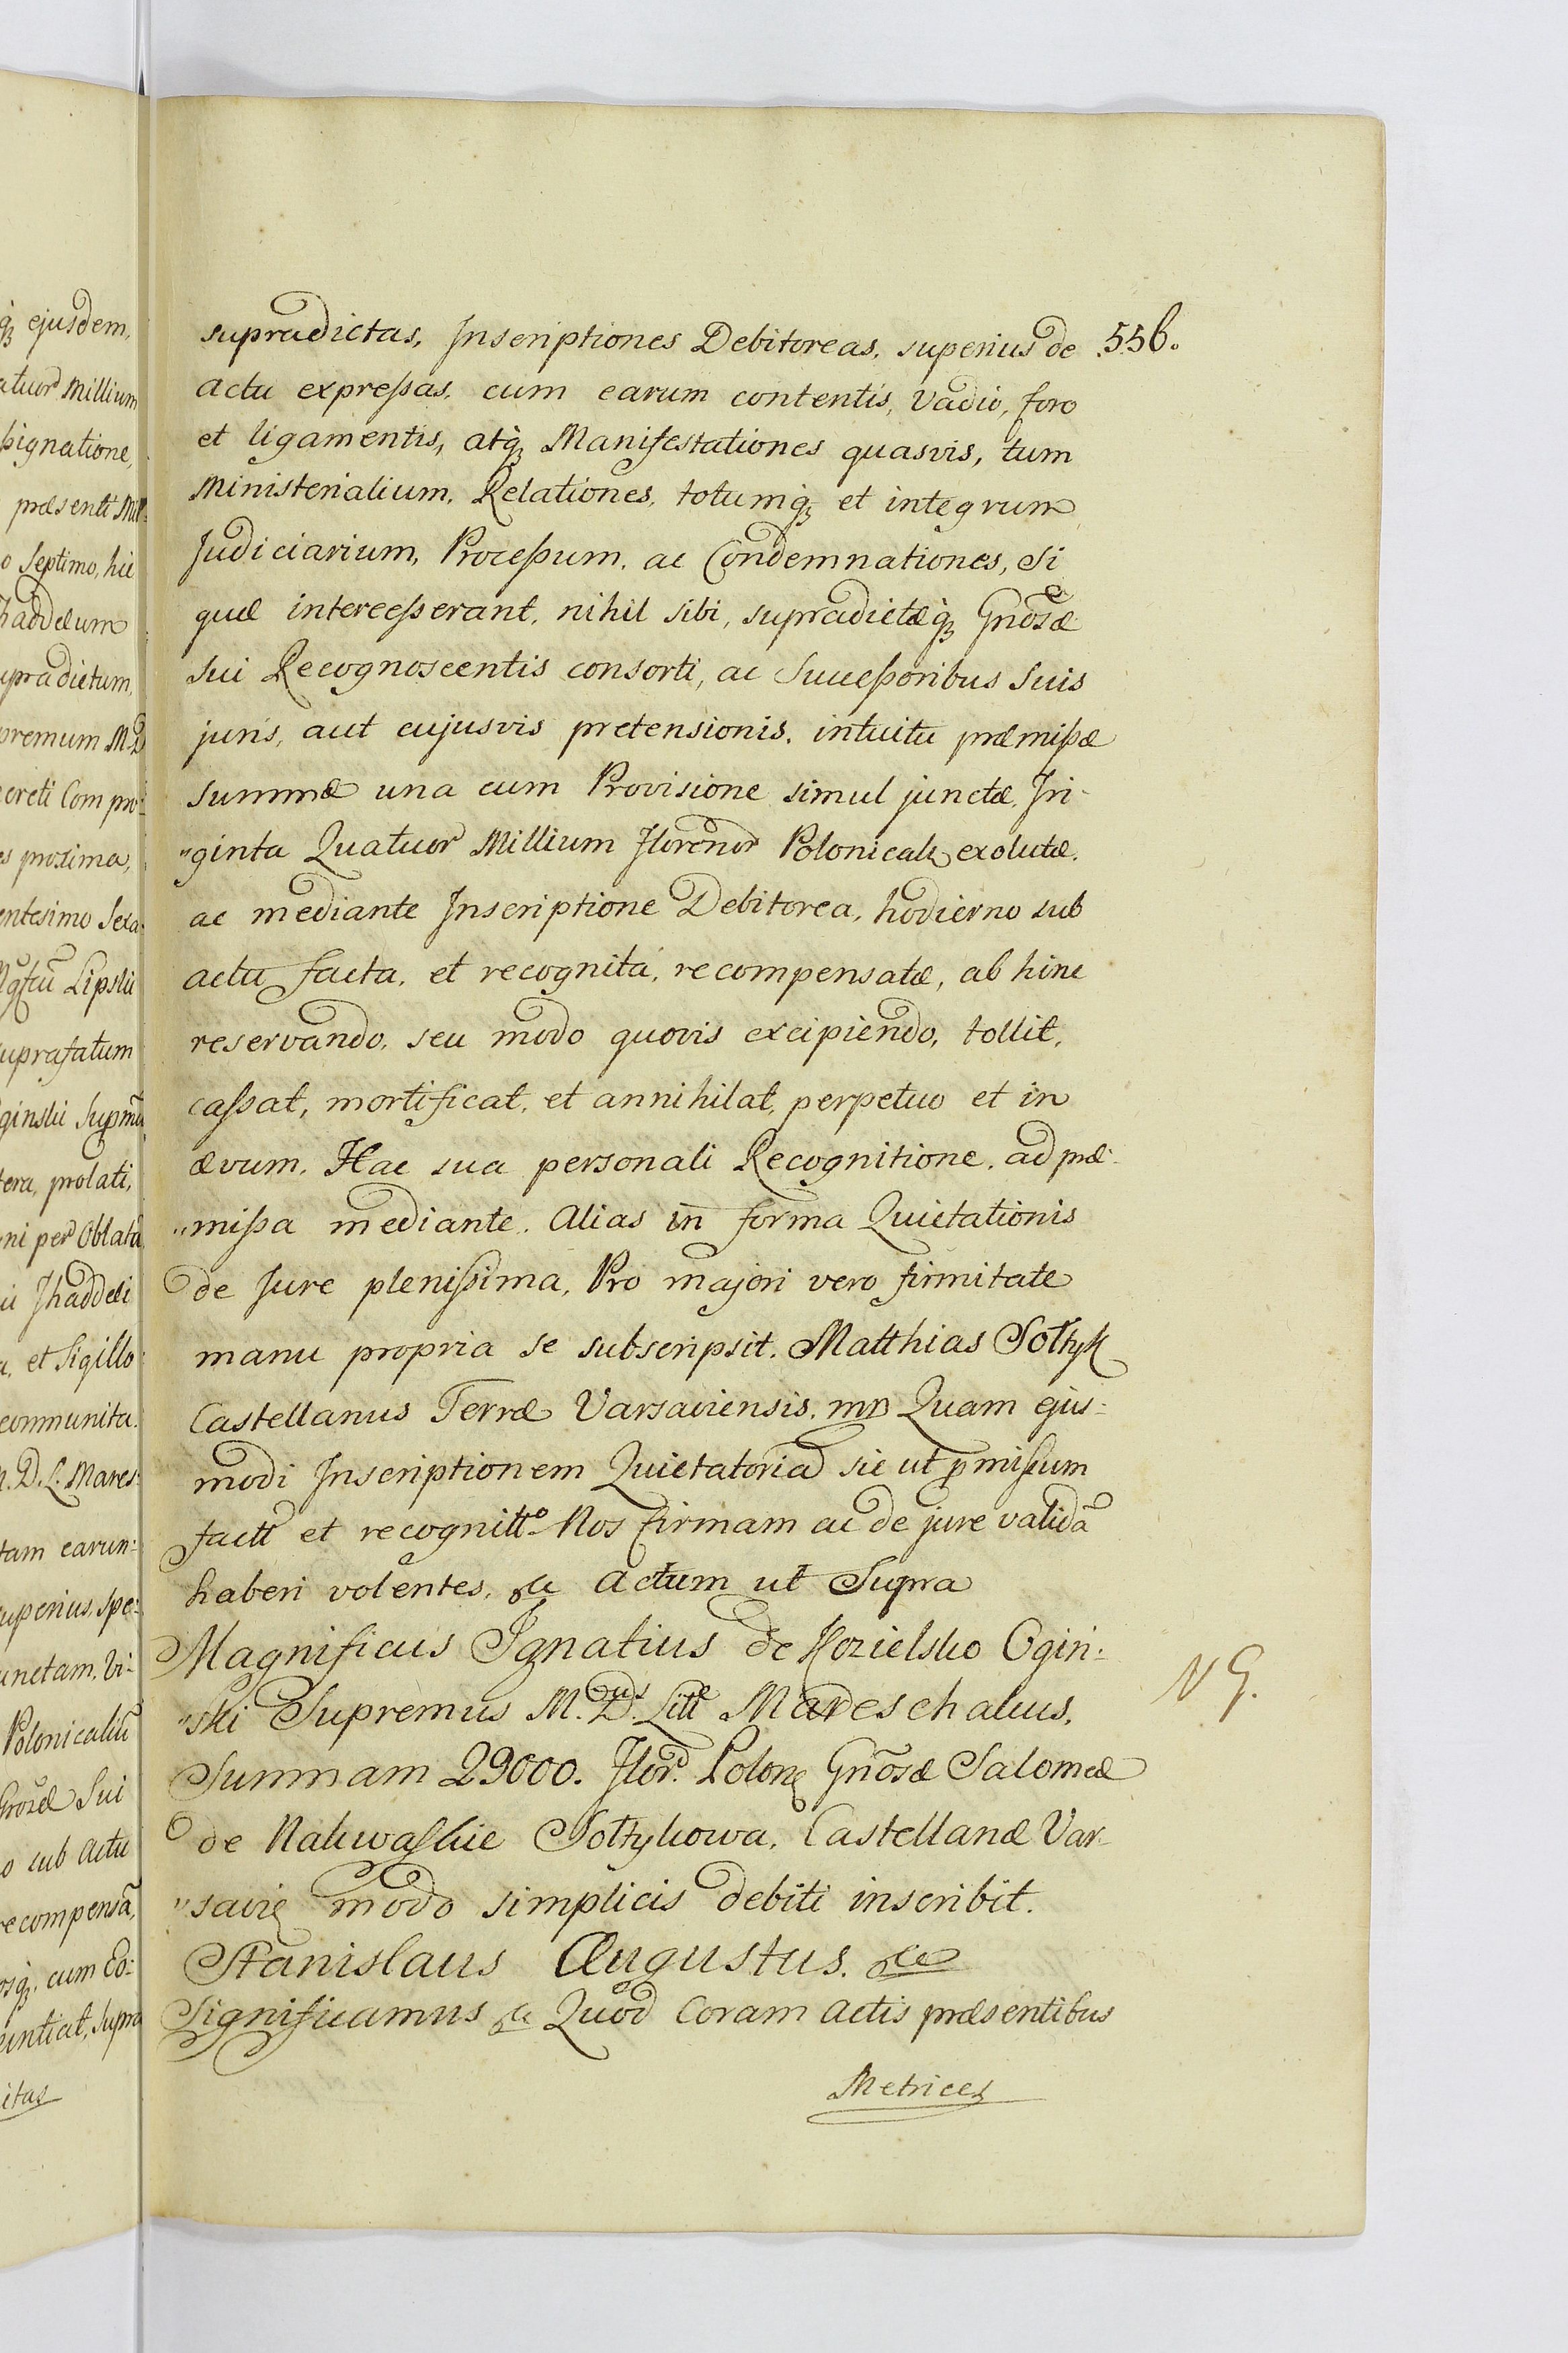 supradictas, Inscriptiones Debitoreas, superius de 556.
actu expreſsas, cum earum contentis, Vadio, foro
et ligamentis, atq₃ Manifestationes quasvis, tum
Ministerialium, Relationes, totumq₃ et integrum
Judiciarium, Proceſsum, ac Condemnationes, Si
quæ interceſserant, nihil sibi, supradictæq₃ Gnõsæ
sui Recognoscentis consorti, ac Succeſsoribus Suis
juris, aut cujusvis pretensionis, intuitu præmiſsæ
summæ una cum Provisione simul junctæ, Tri-
"ginta Quatuor Millium Florenor Polonical exolutæ,
ac mediante Inscriptione Debitorea, hodierno sub
actu facta, et recognita, recompensatæ, ab hinc
reservando, seu modo quovis excipiendo, tollit,
caſsat, mortificat, et annihilat, perpetuo et in
ævum, Hac sua personali Recognitione, ad præ-
"miſsa mediante. Alias in forma Quietationis
de Jure pleniſsima, Pro majori vero firmitate
manu propria se subscripsit. Matthias Sołtyk
Castellanus Terræ Varsaviensis. mp Quam ejus:
modi Inscriptionem Quietatoria sic ut pmiſsum
factt et recognittº Nos firmam ac de jure validã
haberi volentes, &c Actum ut Supra
Magnificus Ignatius de Kozielsko Ogin:
"ski Supremus M. Dus Litt Mareschalcus, N G.
Summam 29000. Flor. Polon Gnõsæ Salomeæ
de Nakwaskie Sołtykowa, Castellanæ Var-
"savię modo simplicis debiti inscribit.
Stanislaus Augustus. &c
Significamus &c Quod Coram Actis præsentibus
Metrices
q₃ ejusdem,
atuor Millium
ſsignatione,
præsenti Mil-
o Septimo, hic
Thaddæum
upradictum,
premum M. D
creti Compro:
es proxima,
entesimo Sexa:
Lipski
suprafatum
ginski Supmũ
tera, prolati,
ni per Oblatã
Thaddæi
a, et Sigillo
communita.
M. D. L. Mares:
tam earun:
superius, spe:
unctam, Vi-
Polonicaliũ
Gnosæ Sui
o sub Actu
recompensã,
osq₃, cum Eo:
nunticat, Supra
itas